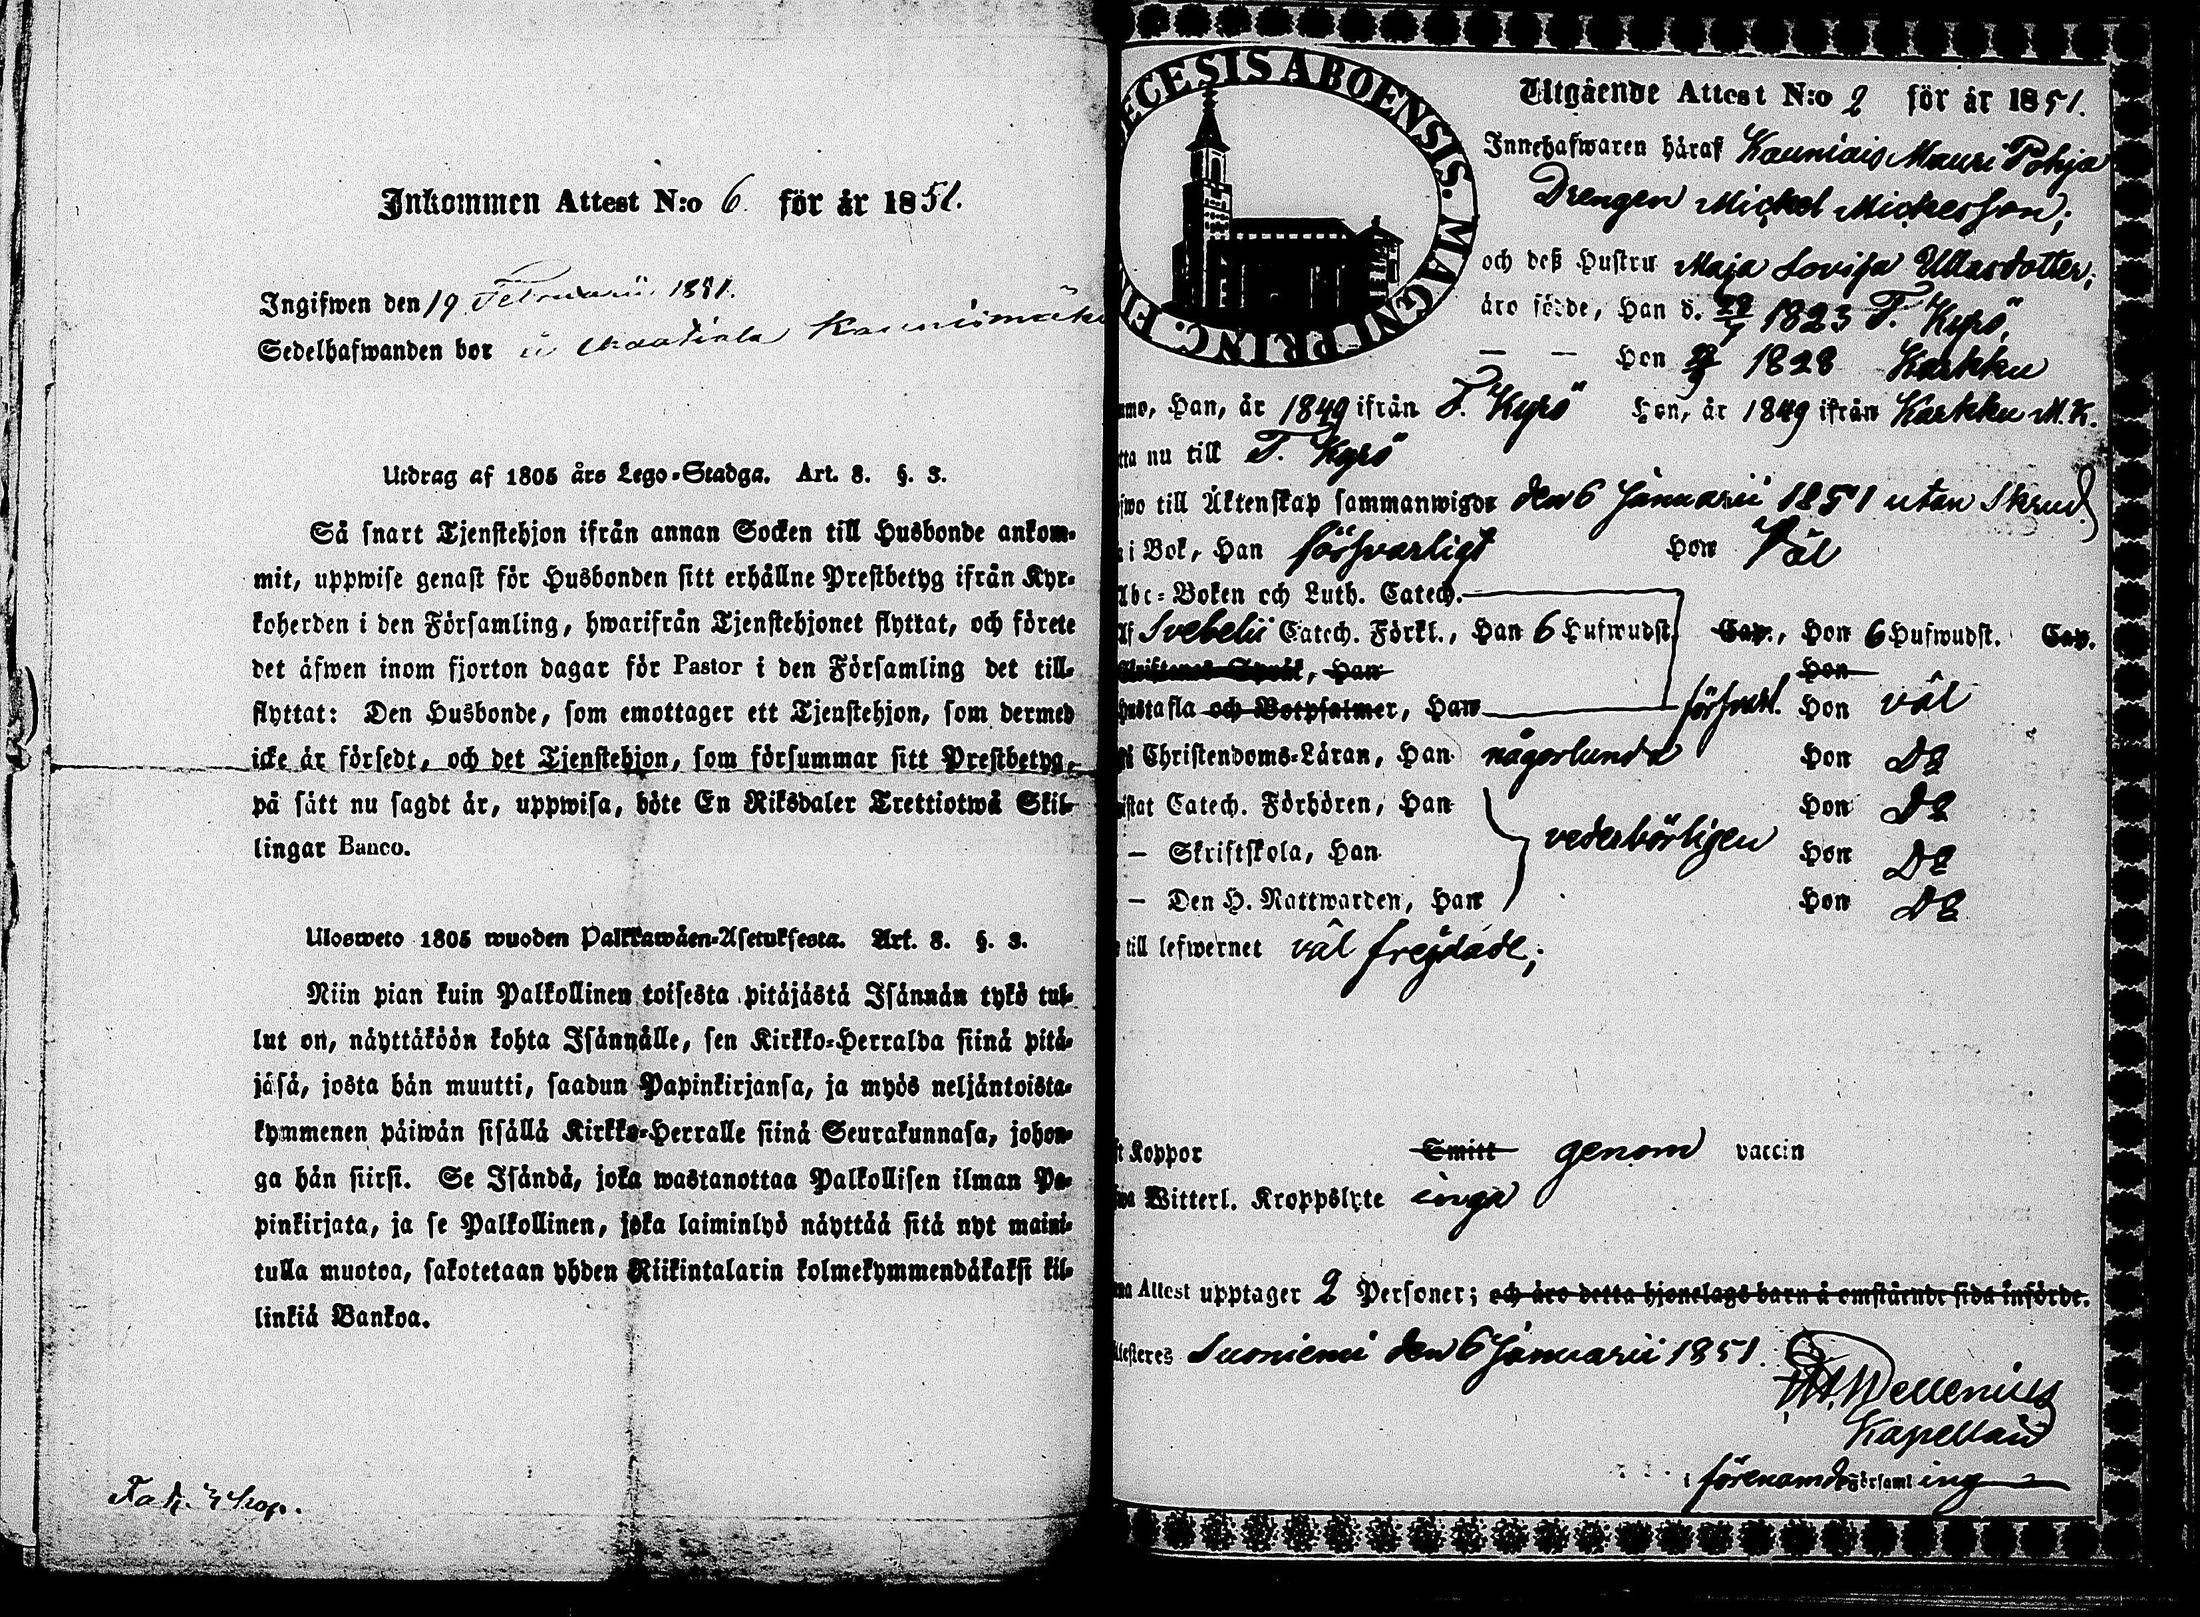 Inkommen Attest N:o 6. för år 1851.
Ingifwen den 19 Februarii 1851.
Sedelhafwanden bor
Utdrag af 1805 års Lego-Stadga. Art. 8. §. 3.
Så snart Tjenstehjon ifrån annan Socken till Husbonde ankom-
mit, uppwise genast för Husbonden sitt erhållne Prestbetyg ifrån Kyr-
koherden i den Församling, hwarifrån Tjenstehjonet flyttat, och förete
det äfwen inom fjorton dagar för Pastor i den Församling det till-
flyttat: Den Husbonde, som emottager ett Tjenstehjon, som dermed
icke är försedt, och det Tjenstehjon, som försummar sitt Prestbetyg,
på sätt nu sagdt är, uppwisa, böte En Riksdaler Trettiotwå Skil-
lingar Banco.
Ulosweto 1805 wuoden Palkkawäen-Asetuksesta. Art. 8. §. 3.
Niin pian kuin Palkollinen toisesta pitäjästä Isännän tykö tul-
lut on, näyttäköön kohta Isännälle, sen Kirkko-Herralda siinä pitä-
jäsä, josta hän muutti, saadun Papinkirjansa, ja myös neljäntoista-
kymmenen päiwän sisällä Kirkko-Herralle siinä Seurakunnasa, johon-
ga hän siirsi. Se Isändä, joka wastanottaa Palkollisen ilman Pa-
pinkirjata, ja se Palkollinen, joka laiminlyö näyttää sitä nyt maini-
tulla muotoa, sakotetaan yhden Riikintalarin kolmekymmendäkaksi kil-
linkiä Bankoa.
ECESIS ABOENSIS. MAGNI PRINC. FIN
Utgående Attest N:o 2 för år 1851.
Innehafwaren häraf Kauniais Mauri Pohja
Drengen Mickel Mickelsson;
och deß Hustru Maja Lovisa Ullasdotter;
äro födde, Han d. 29/7 1823 T. Kyrö,
— — Hon 1828 Karkku
Han, år 1849 ifrån T. Kyrö Hon, år 1849 ifrån Karkku M.K.
nu till T. Kyrö
till Äktenskap sammanwigde den 6 Januarii 1851 utan Skrud.
i Bok, Han försvarligt Hon Väl
Abc-Boken och Luth. Catech.
af Svebelii Catech. Förkl., Han 6 Hufwudst. Cap., Hon 6 Hufwudst. Cap.
Skriftenes Språk, Han Hon
Hustafla och Botpsalmer, Han försvarl. Hon väl
Christendoms-Läran, Han någorlunda Hon Do
Catech. Förhören, Han vederbörligen Hon Do
— Skriftskola, Han Hon Do
— Den H. Nattwarden, Han Hon Do
till lefwernet väl frejdade;
Koppor Smitt genom vaccin
Witterl. Kroppslyte inga
Attest upptager 2 Personer; och äro detta hjonelags barn å omstående sida införde.
Suoniemi den 6 Januarii 1851.
Wellenius
Kapellan
i förenämde Församling